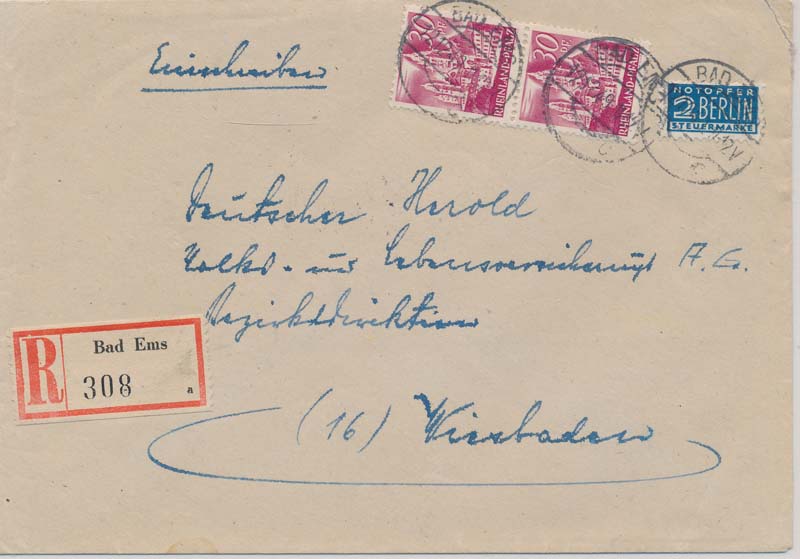 Einschreiben
30 PF
RHEINLAND-PFALZ
30 PF
RHEINLAND-PFALZ
BAD EMS
BAD
NOTOPFER
2 BERLIN
STEUERMARKE
Deutscher Herold
Volks- und Lebensversicherungs A. G.
Bezirksdirektion
R
Bad Ems
308 a
(16) Wiesbaden